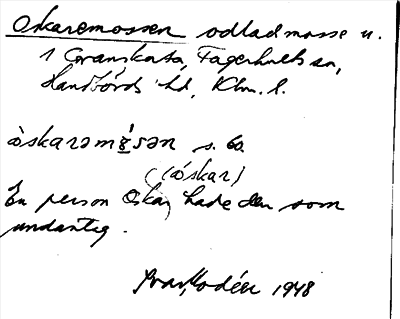 Oskaremossen odlad mosse u.
1 Granskata, Fagerhults sn,
Handbörds hd, Klm. l.
òskarəmɷ̀sən s. 60
(òskar)
En person Oskar hade den som
undantag.
Ivar Modéer 1948